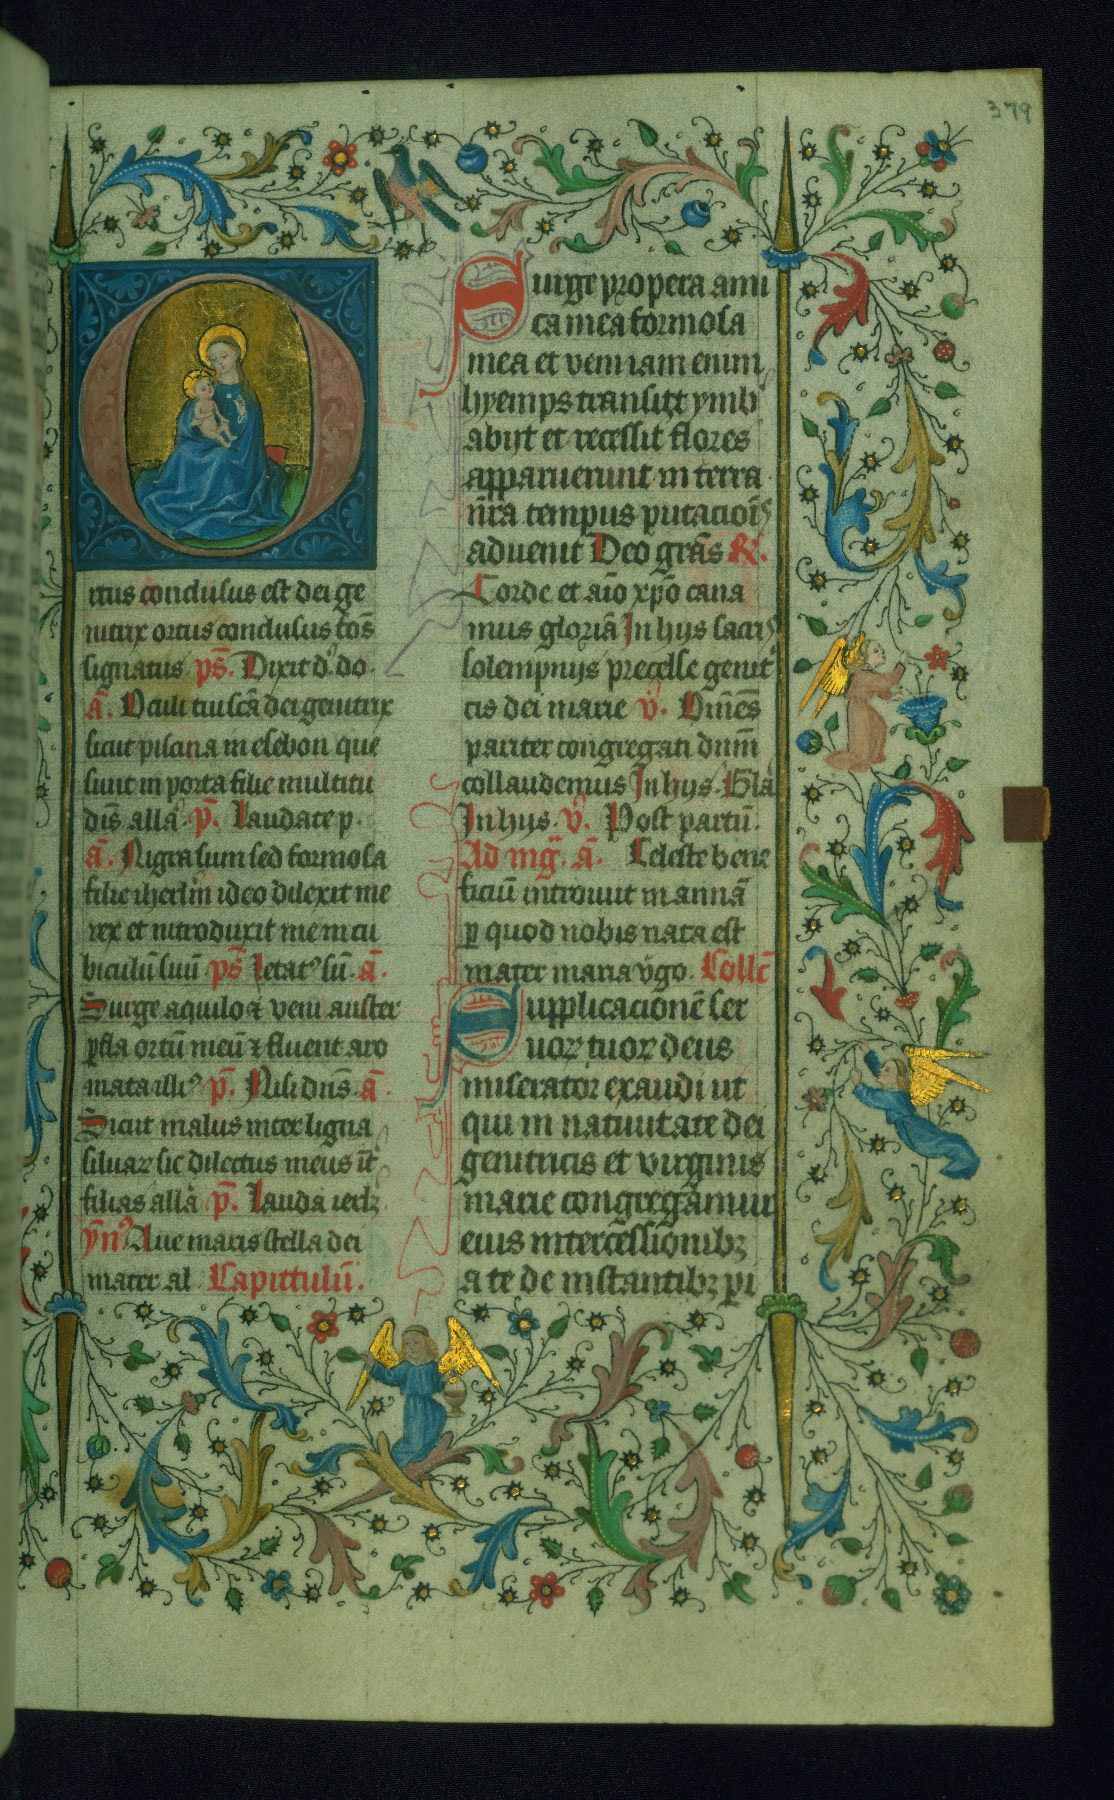 379
Ortus conclusus est dei ge
nitrix ortus conclusus fōs
signatus ps̄. Dixit d⁹ do.
ā. Oculi tui sc̄a dei genitrix
sicut piscina in esebon que
sunt in porta filie multitu
dīs all̄a. p̄. Laudate p.
ā. Nigra sum sed formosa
filie iherl̄m ideo dilexit me
rex et introduxit me in cu
biculū suū ps̄ Letat⁹ sū. ā.
Surge aquilo ⁊ veni auster
ꝑfla ortū meū ⁊ fluent aro
mata illi⁹ p̄. Nisi dn̄s. ā.
Sicut malus inter ligna
siluaꝝ sic dilectus meus īt
filias all̄a p̄. Lauda ierlꝫ
yn̄⁹ Aue maris stella dei
mater al. Capittulū.
Surge propera ami
ca mea formosa
mea et veni iam enim
hyemps transiit ymb
abijt et recessit flores
apparuerunt in terra
nr̄a tempus putacioīs
aduenit Deo gr̄as ℟.
Corde et aīo xp̄o cana
mus gloriā In hijs sacris
solempnijs precelse genit
cis dei marie v̄. Omēs
pariter congregati dn̄m
collaudemus In hijs. Gl̄a
In hijs. v̄. Post partū.
Ad mḡ. ā. Celeste bene
ficiū introiuit in annā
ꝑ quod nobis nata est
mater maria v̄go. Coll̄c
Supplicacionē ser
uoꝝ tuoꝝ deus
miserator exaudi ut
qui in natiuitate dei
genitricis et virginis
marie congregamur
eius intercessionibꝫ
a te de instantibꝫ pi